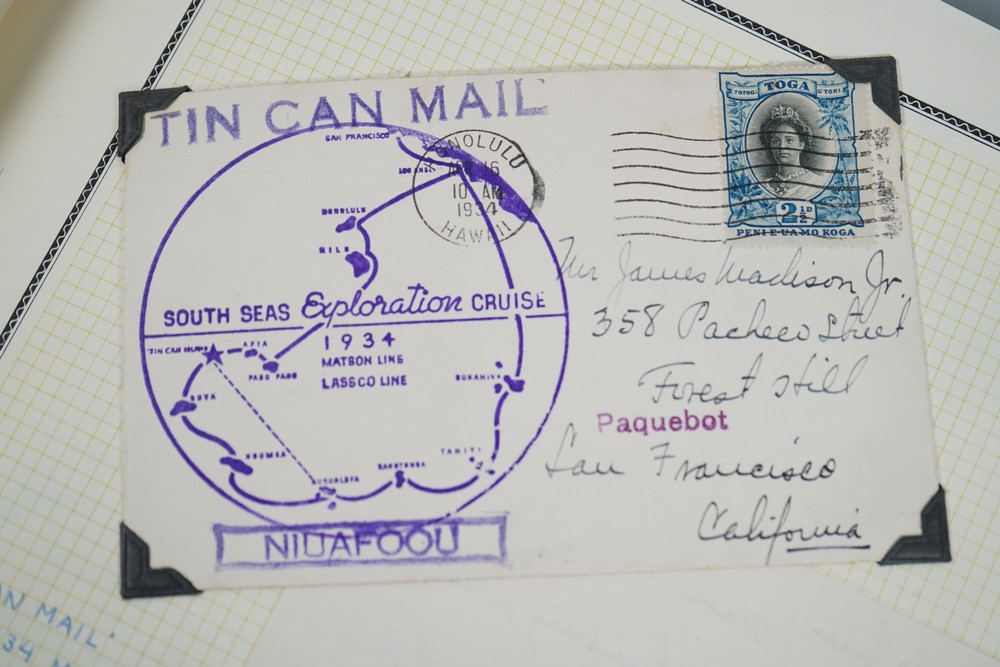 TIN CAN MAIL
SAN FRANCISCO
LOS ANGELES
HONOLULU
HILO
SOUTH SEAS Exploration CRUISE
1934
MATSON LINE
LASSCO LINE
TIN CAN ISLAND
APIA
PAGO PAGO
SUVA
NOUMEA
NUKUALOFA
RAROTONGA
TAHITI
NUKAHIVA
NIUAFOOU
HONOLULU
16
10 AM
1934
HAWAII
TOGA
2½D
PENI E UA MO KOGA
Mr James Madison Jr.
358 Pacheco Street
Forest Hill
Paquebot
San Francisco
California
AN MAIL
34